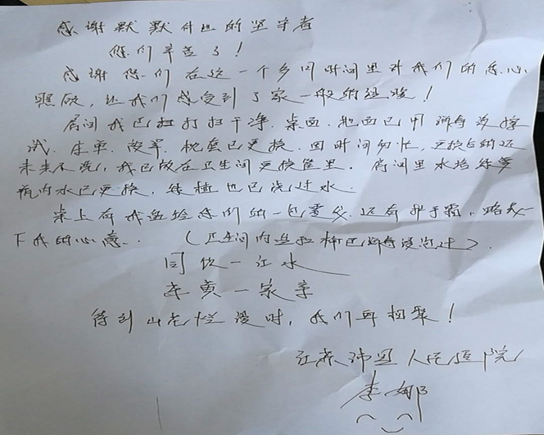 感谢默默付出的坚守者
您们辛苦了!
感谢您们在这一个多月时间里对我们的悉心
照顾,让我们感受到了家一般的温暖!
房间我已打扫干净,桌面、地面已用消毒液擦
拭,床单、被罩、枕套已更换,因时间匆忙,更换后的还
未来不及洗,我已放在卫生间更换筐里。房间里水培绿萝
瓶内水已更换,绿植也已浇过水
桌上有我送给您们的一包,还有护手霜,略表
下我的心意。(卫生间内垃圾桶已消毒浸泡过)
同饮一江水
苏黄一家亲
等到山花烂漫时,我们再相聚!
江苏沛县人民医院
李娜